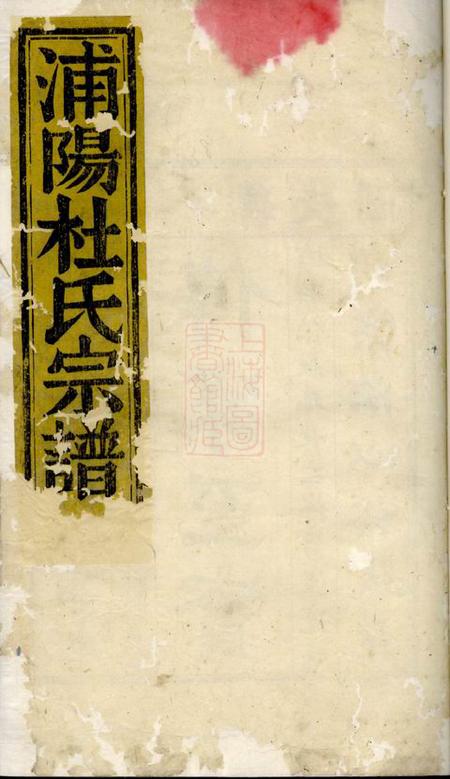 浦陽杜氏宗譜
上海圖書館藏